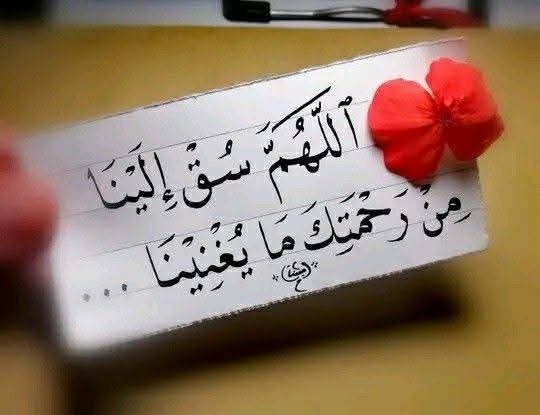 اللَّهُمَّ سُقْ إِلَيْنَا
مِنْ رَحْمَتِكَ مَا يُغْنِيْنَا ...